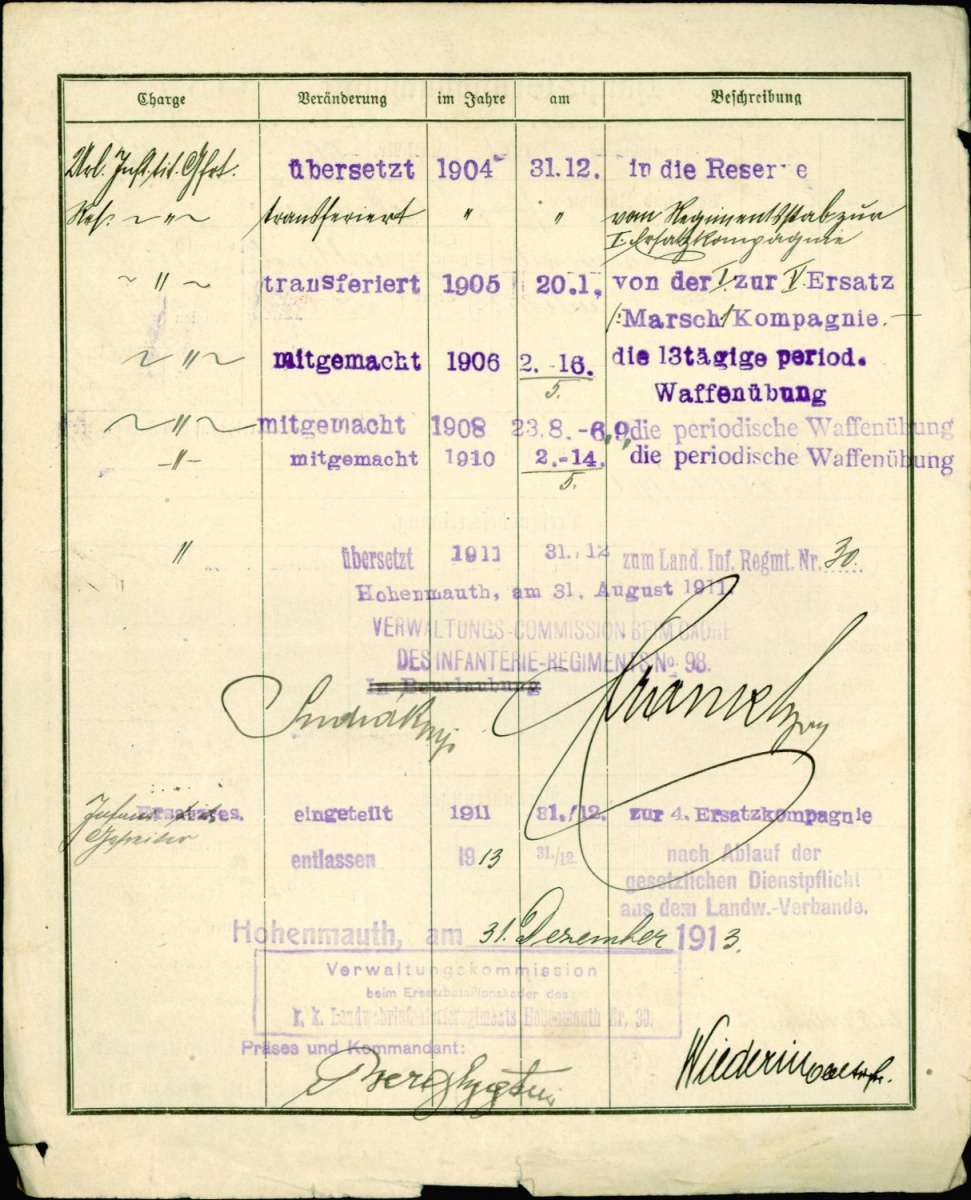 Charge Veränderung im Jahre am Beschreibung
Url. Inft. tit. Gfrt. übersetzt 1904 31.12. in die Reserve
Res. ~ " ~ transferiert " " vom Regimentsstab zur
I. Ersatzkompagnie
~ " ~ transferiert 1905 20.1. von der I. zur V. Ersatz
/:Marsch:/Kompagnie.—
~ " ~ mitgemacht 1906 2.-16. die 13tägige period.
5. Waffenübung
~ " ~ mitgemacht 1908 23.8.-6.9. die periodische Waffenübung
-"- mitgemacht 1910 2.-14. die periodische Waffenübung
5.
" übersetzt 1911 31./12 zum Land. Inf. Regmt. Nr. 30.
Hohenmauth, am 31. August 1911.
VERWALTUNGS-COMMISSION BEIM CADRE
DES INFANTERIE-REGIMENTS No. 98.
In Beurlaubung
Ersatzres. eingeteilt 1911 31./12. zur 4. Ersatzkompagnie
entlassen 1913 31./12. nach Ablauf der
gesetzlichen Dienstpflicht
aus dem Landw.-Verbande.
Hohenmauth, am 31. Dezember 1913.
Verwaltungskommission
beim Ersatzbataillonskader des
k. k. Landwehrinfanterieregiments Hohenmauth Nr. 30.
Präses und Kommandant: